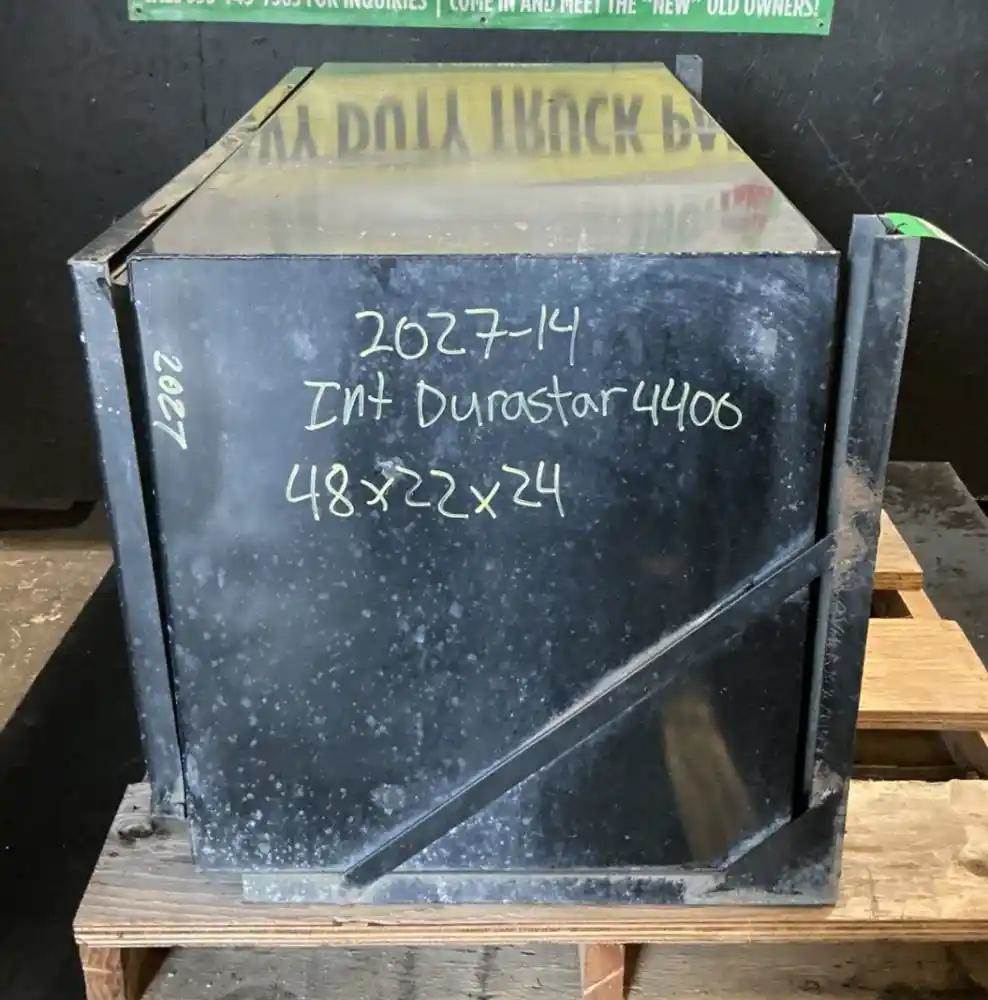 FOR INQUIRIES | COME IN AND MEET THE "NEW" OLD OWNERS!
DUTY TRUCK
2027-14
2027
Int Durastar 4400
48x22x24